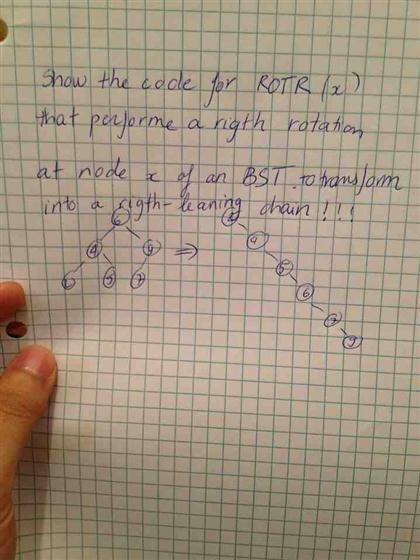 Show the code for ROTR (x)
that performe a rigth rotation
at node x of an BST. to transform
into a rigth-leaning chain !!!
6
4 9 ⇒ 4
5 7 5
6
7
9